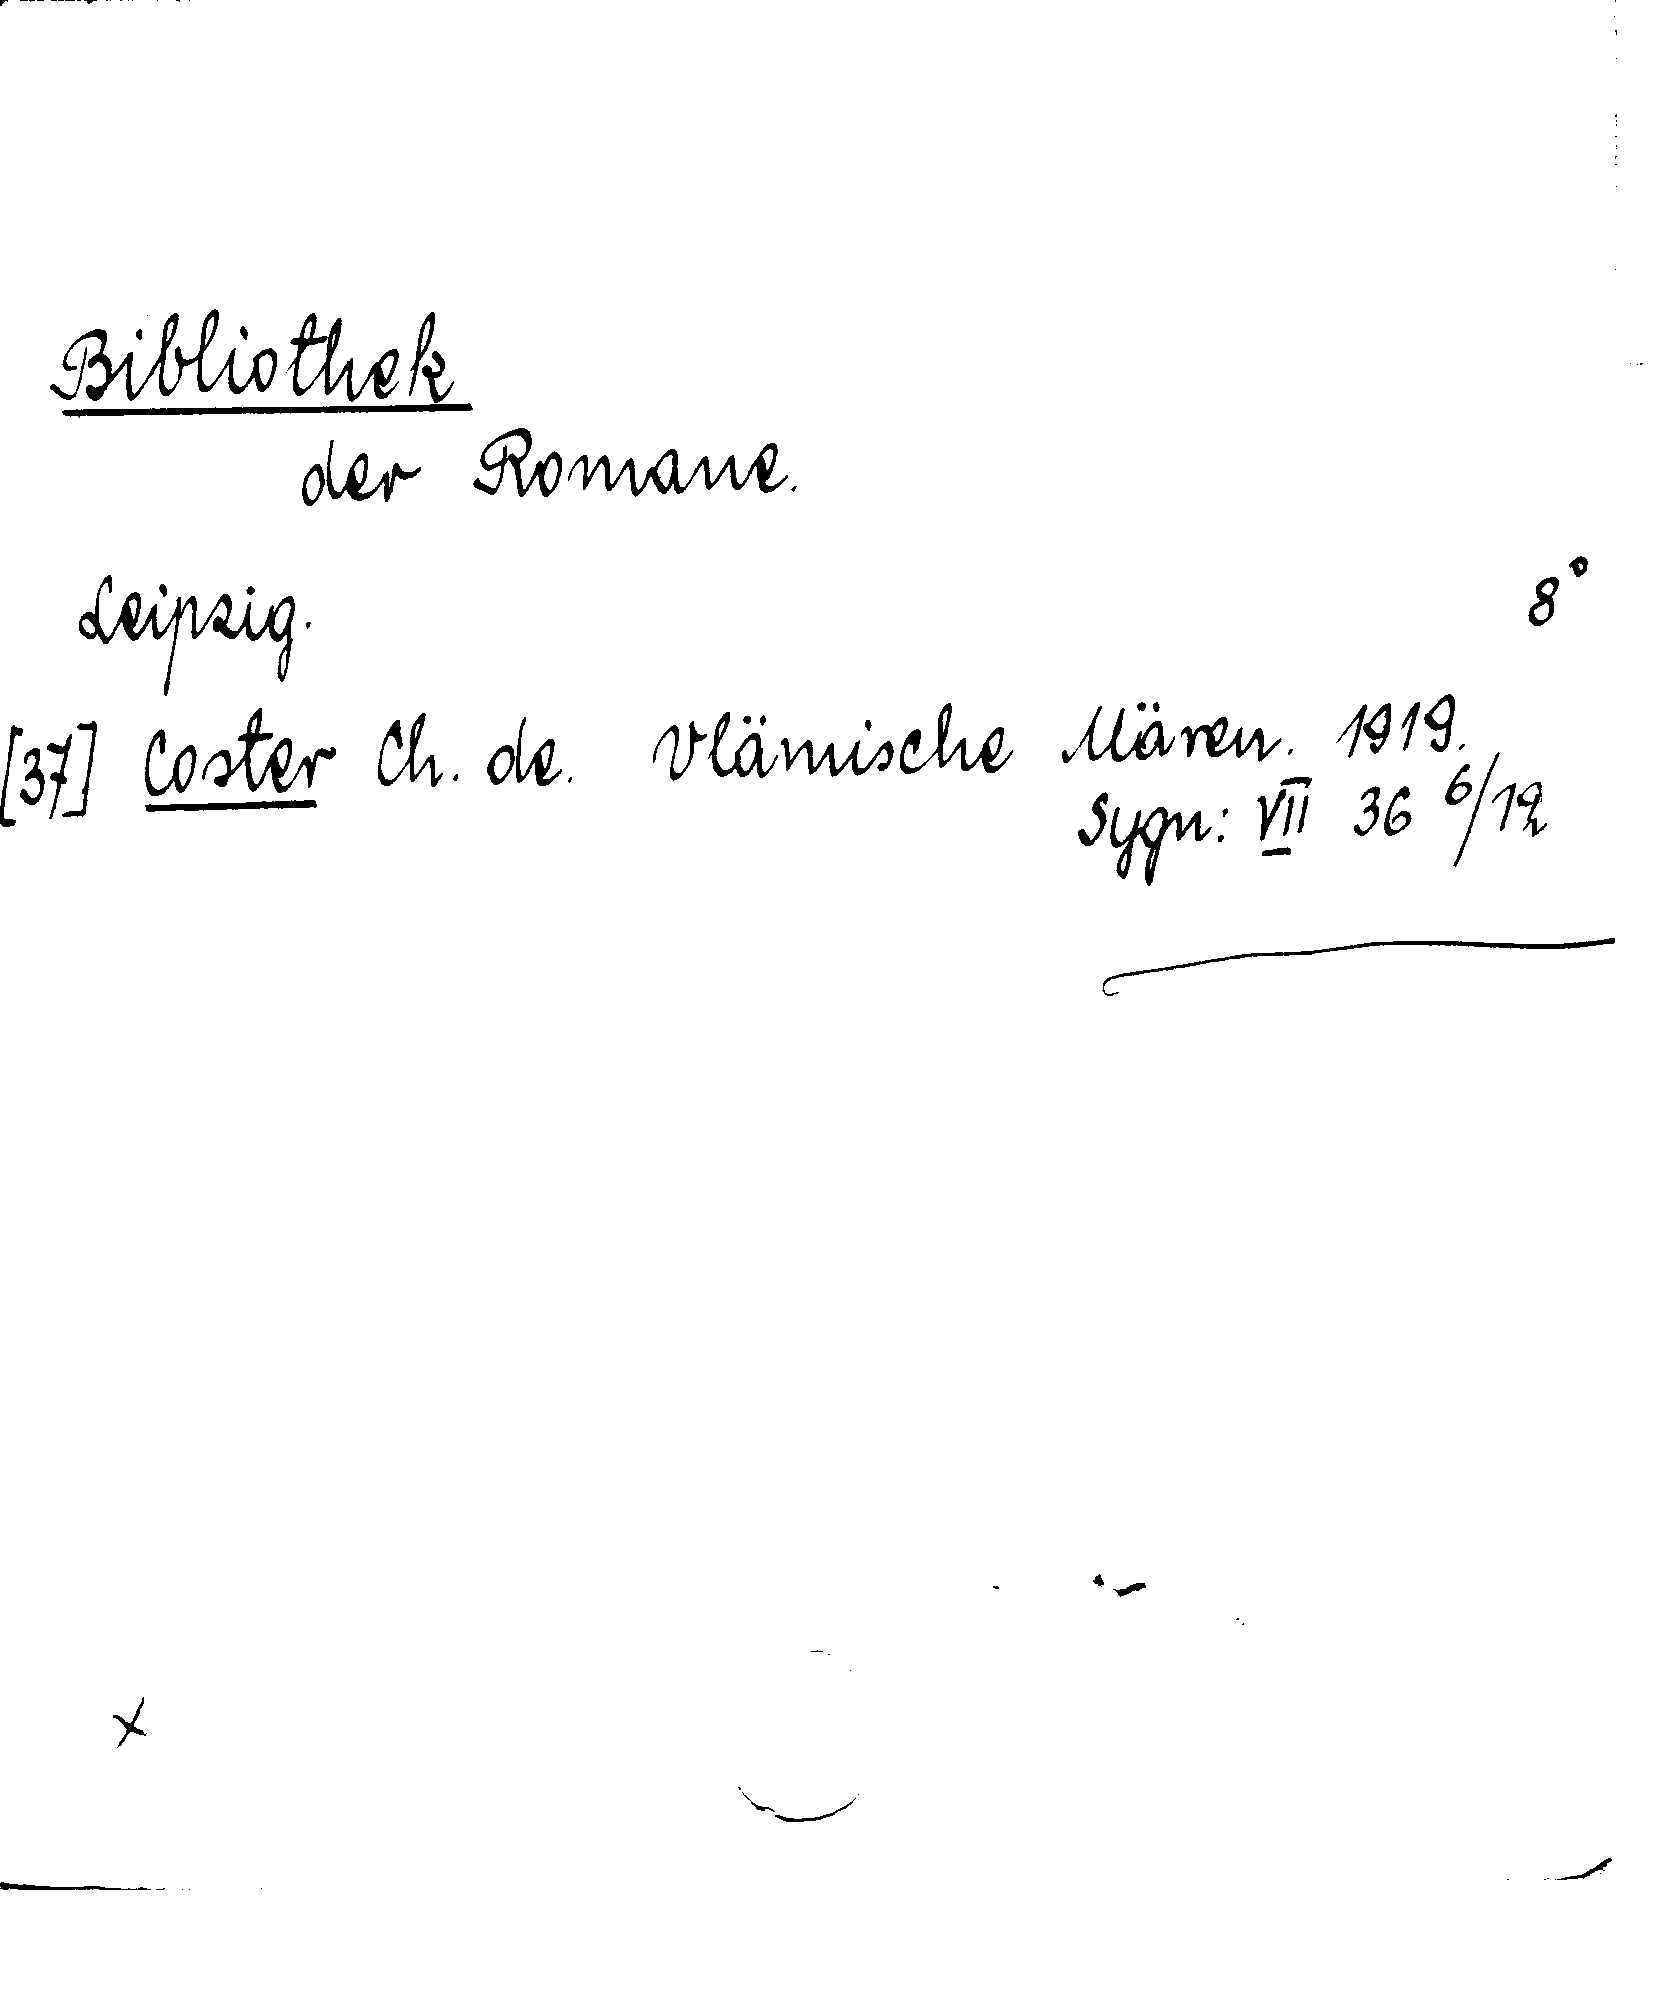 Bibliothek
der Romane.
Leipzig. 8°
[37] Coster Ch. de. Vlämische Mären. 1919.
Sygn: VII 36 6/19
x